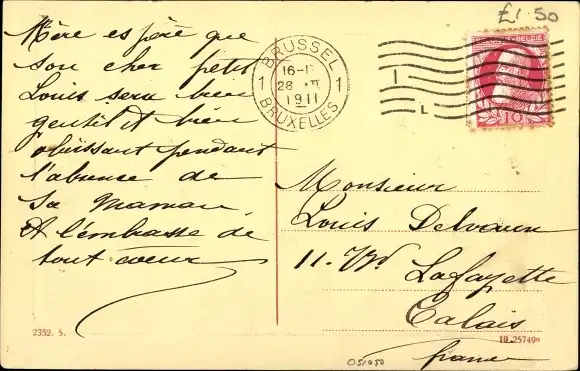 £1.50
BRUSSEL
1 16-1 1
28
1911
BRUXELLES
L
BELGIE
10
Mère espère que
son cher petit
Louis sera bien
gentil et bien
obéissant pendant
l'absence de
sa maman
et l'embrasse de
tout coeur
Monsieur
Louis Delvaux
11. Lafayette
Calais
france
2352. S.
10 25749
051050